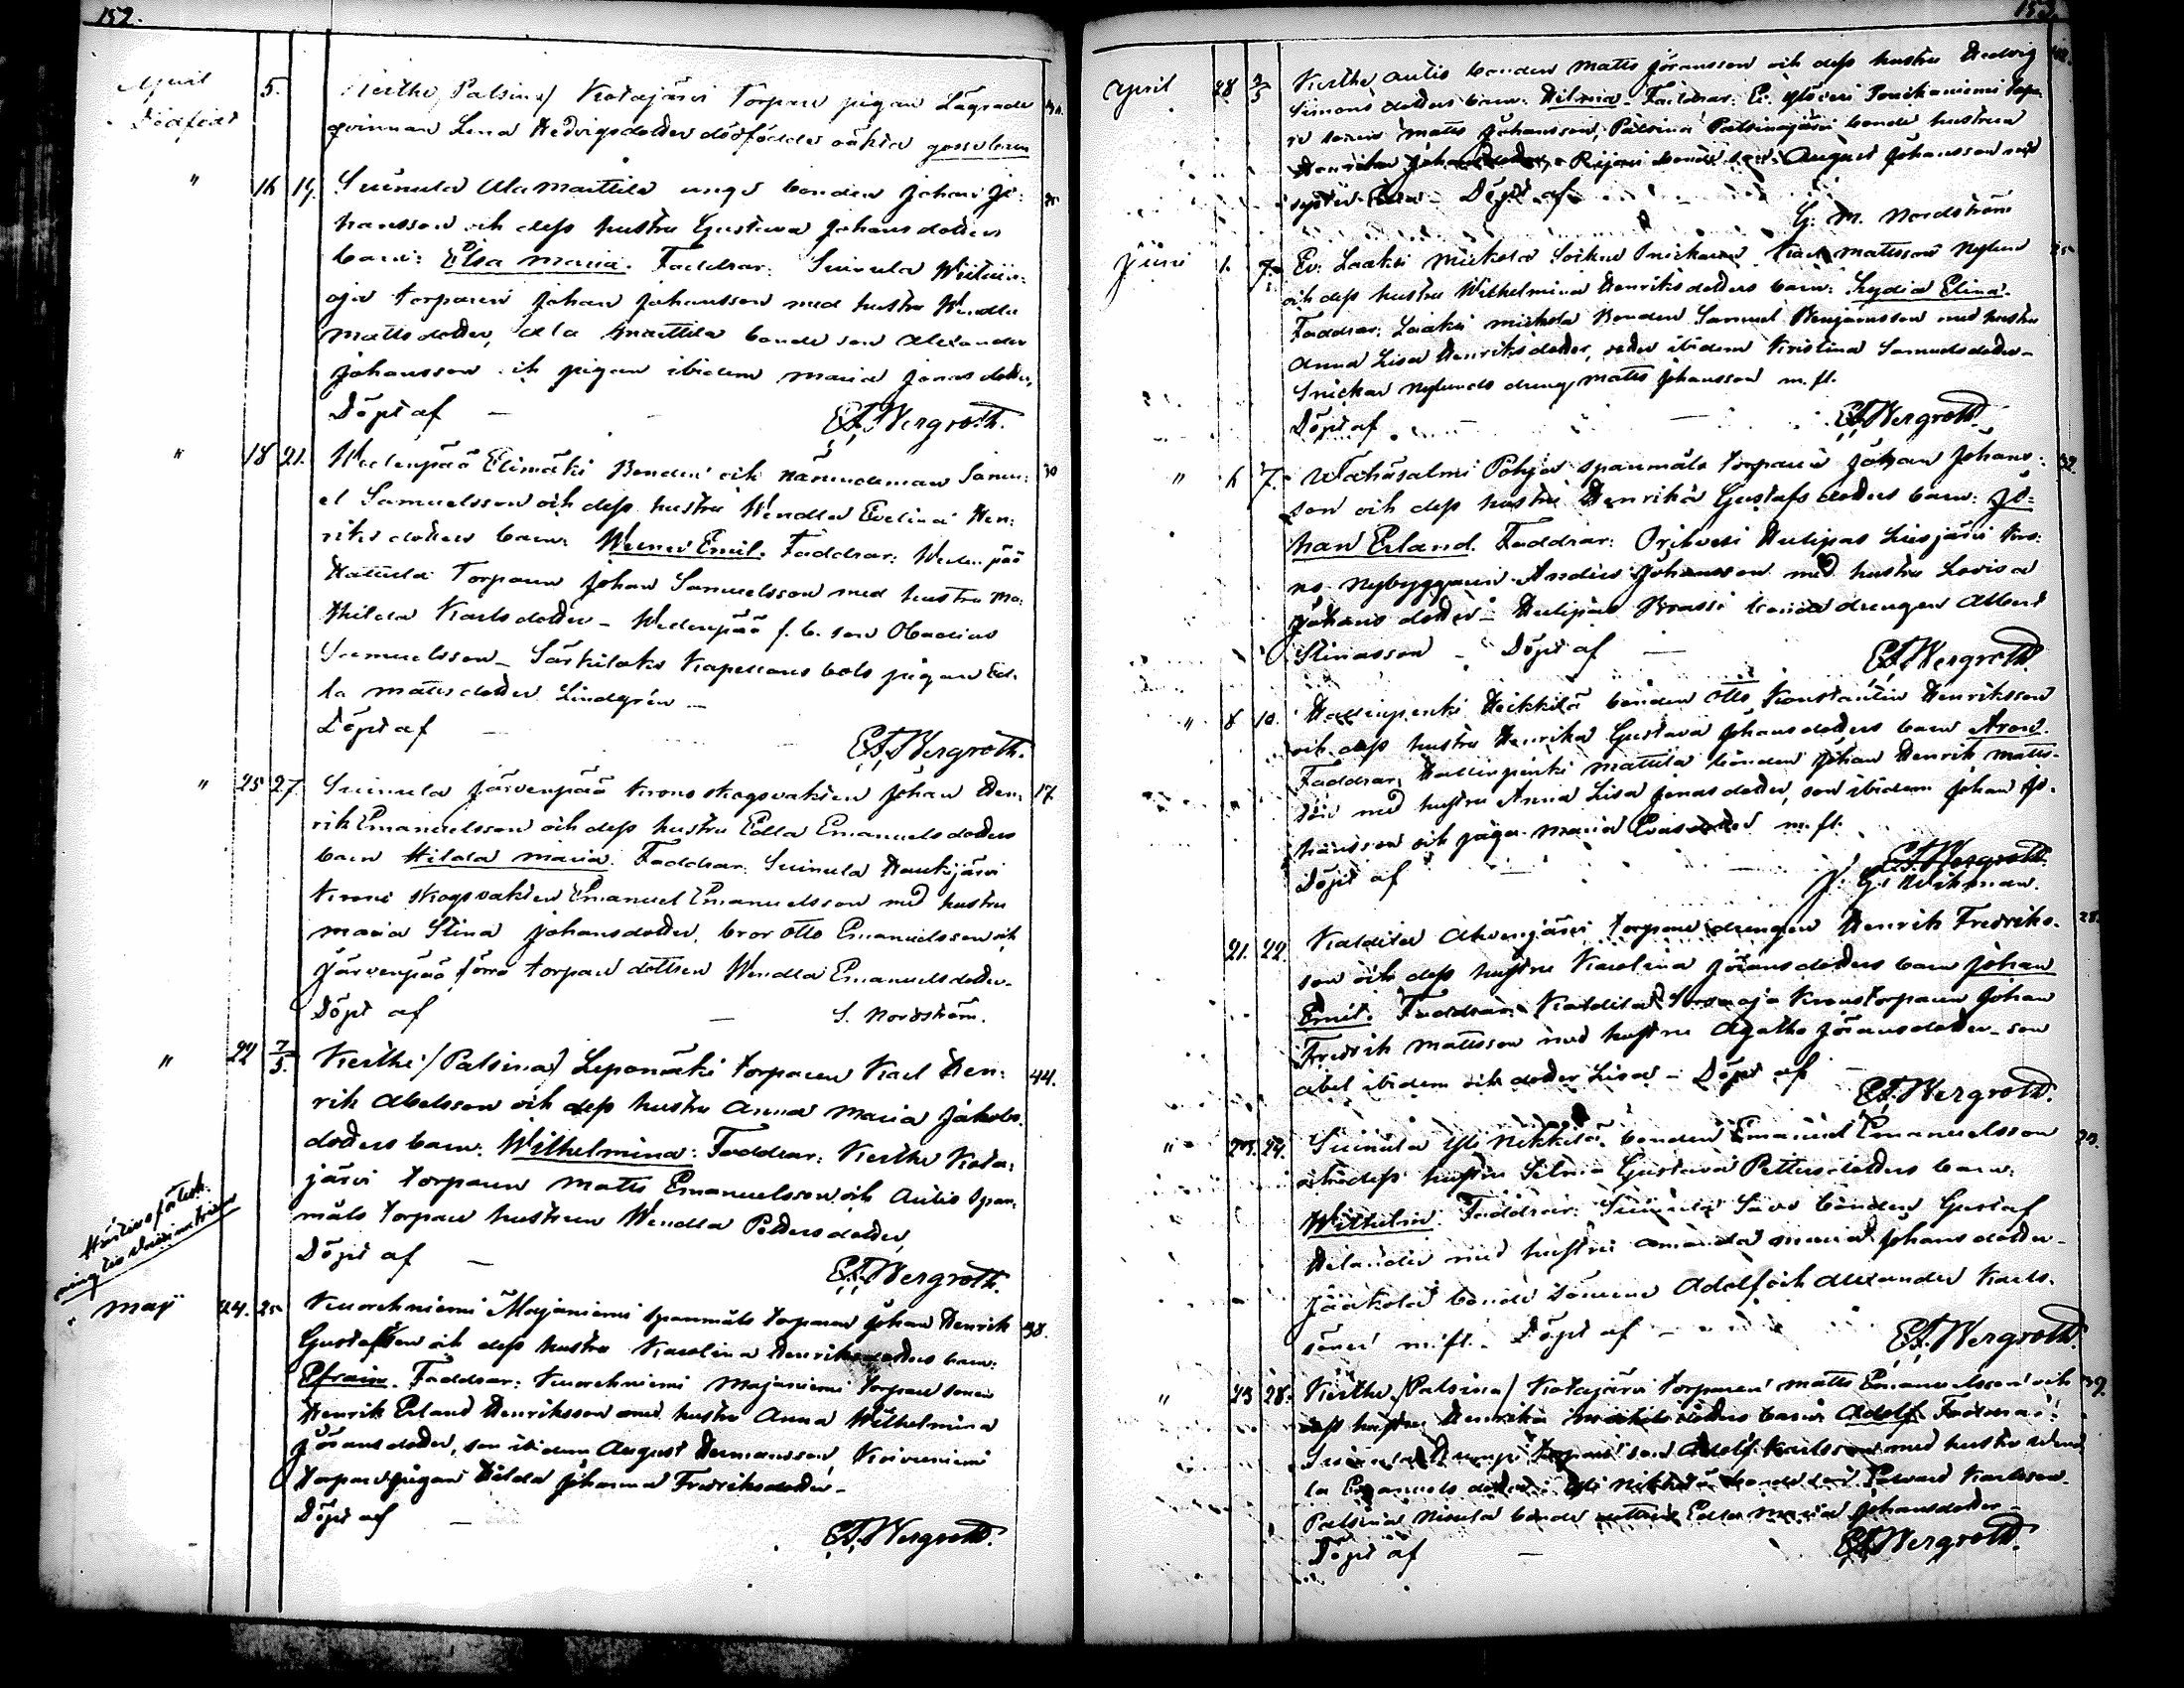 152.
April 5. Kertte /Palsina/ Kotajärvi Torpare pigan Lägrade
Dödfödt qvinnan Lena Hedvigsdotter dödfödda oäkta gossebarn
" 16 19. Suinula Ala Marttila unge bonden Johan Jo-
hansson och dess hustru Gustava Johansdotters
barn: Elsa Maria. Faddrar: Suinula
oja torparen Johan Johansson med hustru Wendla
Mattsdotter, Ala Marttila bonde son Alexander
Johansson och pigan ibidem Maria Jonasdotter,
Döpt af — E.F. Bergroth.
" 18 21. Wedenpää Elimäki Bonden och nämndeman Samu- 30
el Samuelsson och dess hustru Wendla Evelina Hen-
riksdotters barn: Werner Emil. Faddrar: Wedenpää
Hattula Torparen Johan Samuelsson med hustru Ma-
thilda Karlsdotter - Wedenpää f. b. son Obadias
Samuelsson - Särkilaks Kapellans bols pigan Ed-
la Mattsdotter Lindgrén -
Döpt af — E.F. Bergroth.
" 25 27. Suinula Järvenpää Krono skogsvakten Johan Hen- 17.
rik Emanuelsson och dess hustru Edla Emanuelsdotters
barn Hilda Maria. Faddrar: Suinula Haukijärvi
Krono skogsvakten Emanuel Emanuelsson med hustru
Maria Stina Johansdotter, bror Otto Emanuelsson och
Järvenpää förra torpare dottren Wendla Emanuelsdotter.
Döpt af — S. Nordström.
" 22 7/5. Kertte /Palsina/ Leponäki torparen Karl Hen- 44.
rik Abelsson och dess hustru Anna Maria Jakobs
dotters barn: Wilhelmina: Faddrar: Kertte Kota-
järvi torparen Matts Emanuelsson och Autio span-
måls torpare hustrun Wendla Pettersdotter,
Döpt af — E.F. Bergroth.
Maj 24. 25 Kuorehniemi Majaniemi spanmåls torparen Johan Henrik 38.
Gustafsson och dess hustru Karolina Henriksdotters barn:
Efraim. Faddrar: Kuorehniemi Majaniemi torpare sonen
Henrik Erland Henriksson med hustru Anna Wilhelmina
Jöransdotter, son ibidem August Hermansson, Koivuniemi
torpare pigan Hilda Johanna Fredriksdotter -
Döpt af — E.F. Bergroth.
153.
April 28 3/5 Kertte Autio bonden Matts Jöransson och dess hustru Hedvig
Simonsdotters barn: Hilma. Faddrar:
sonen Matts Johansson, Palsina Palsinajärvi bonde hustrun
Henrika Johansdotter, bonde son August Johansson med
syster - Döpt af
G. M. Nordström
Juni 1. 7. Ev. Laaksi Mickola Snickaren Karl Mattsson Nylund
och dess hustru Wilhelmina Henriksdotters barn: Lydia Elina.
Faddrar: Laaksi Mickola Bonden Samuel Benjamsson med hustru
Anna Lisa Henriksdotter, ibidem Kristina Samuelsdotter -
Snickar Nylunds dräng Matts Johansson m. fl.
Döpt af — E.F. Bergroth.
" 6 7. Wähäsalmi Pohja spanmåls torparen Johan Johans- 32.
son och dess hustru Henrika Gustafsdotters barn: Jo-
han Erland. Faddrar: Orihvesi Hulipas Liesjärvi kro-
no Nybyggaren Anders Johansson med hustru Lovisa
Johansdotter - Hulipas Brassi bonde drängen Albert
Stinasson - Döpt af — E.F. Bergroth
" 8 10. Hallinpenki Heikkilä bonden Otto Konstantin Henriksson
och dess hustru Henrika Gustava Johansdotters barn Aron.
Faddrar, Hallinpenki Mattila bonden Johan Henrik Matts-
son med hustru Anna Lisa Jonasdotter, son ibidem Johan Jo-
hansson och pigan Maria Evasdotter m. fl.
Döpt af — E.F. Bergroth
J. G. Wikman.
21. 22. Kaldila Ahvenjärvi torpare drängen Henrik Fredriks- 28
son och dess hustru Karolina Jöransdotters barn Johan
Emil. Faddrar: Kaldila kronotorparen Johan
Fredrik Mattsson med hustru Agatha Jöransdotter - son
Abel ibidem och dotter Lisa - Döpt af — E.F. Bergroth.
" 23. 24. Suinula Yli Nikkilä bonden Emanuel Emanuelsson 20.
och dess hustru Selma Gustava Pettersdotters barn:
Wilhelm. Faddrar: Suinula Savo bonden Gustaf
Helander med hustru Amanda Maria Johansdotter -
Jaakola bonde sönerne Adolf och Alexander Karls-
söner m. fl. - Döpt af — E.F. Bergroth.
" 23 28. Kertte /Palsina/ Kotajärvi torparen Matts Emanuelsson och 39.
dess hustru Henrika barn Adolf Faddrar:
Suinula torpare son Adolf Karlsson med hustru Wend
la Emanuelsdotter, Yli Nikkilä bonde son Edvard Karlsson.
Palsina Nisula bonde dottren Edla Maria Johansdotter -
Döpt af — E.F. Bergroth.